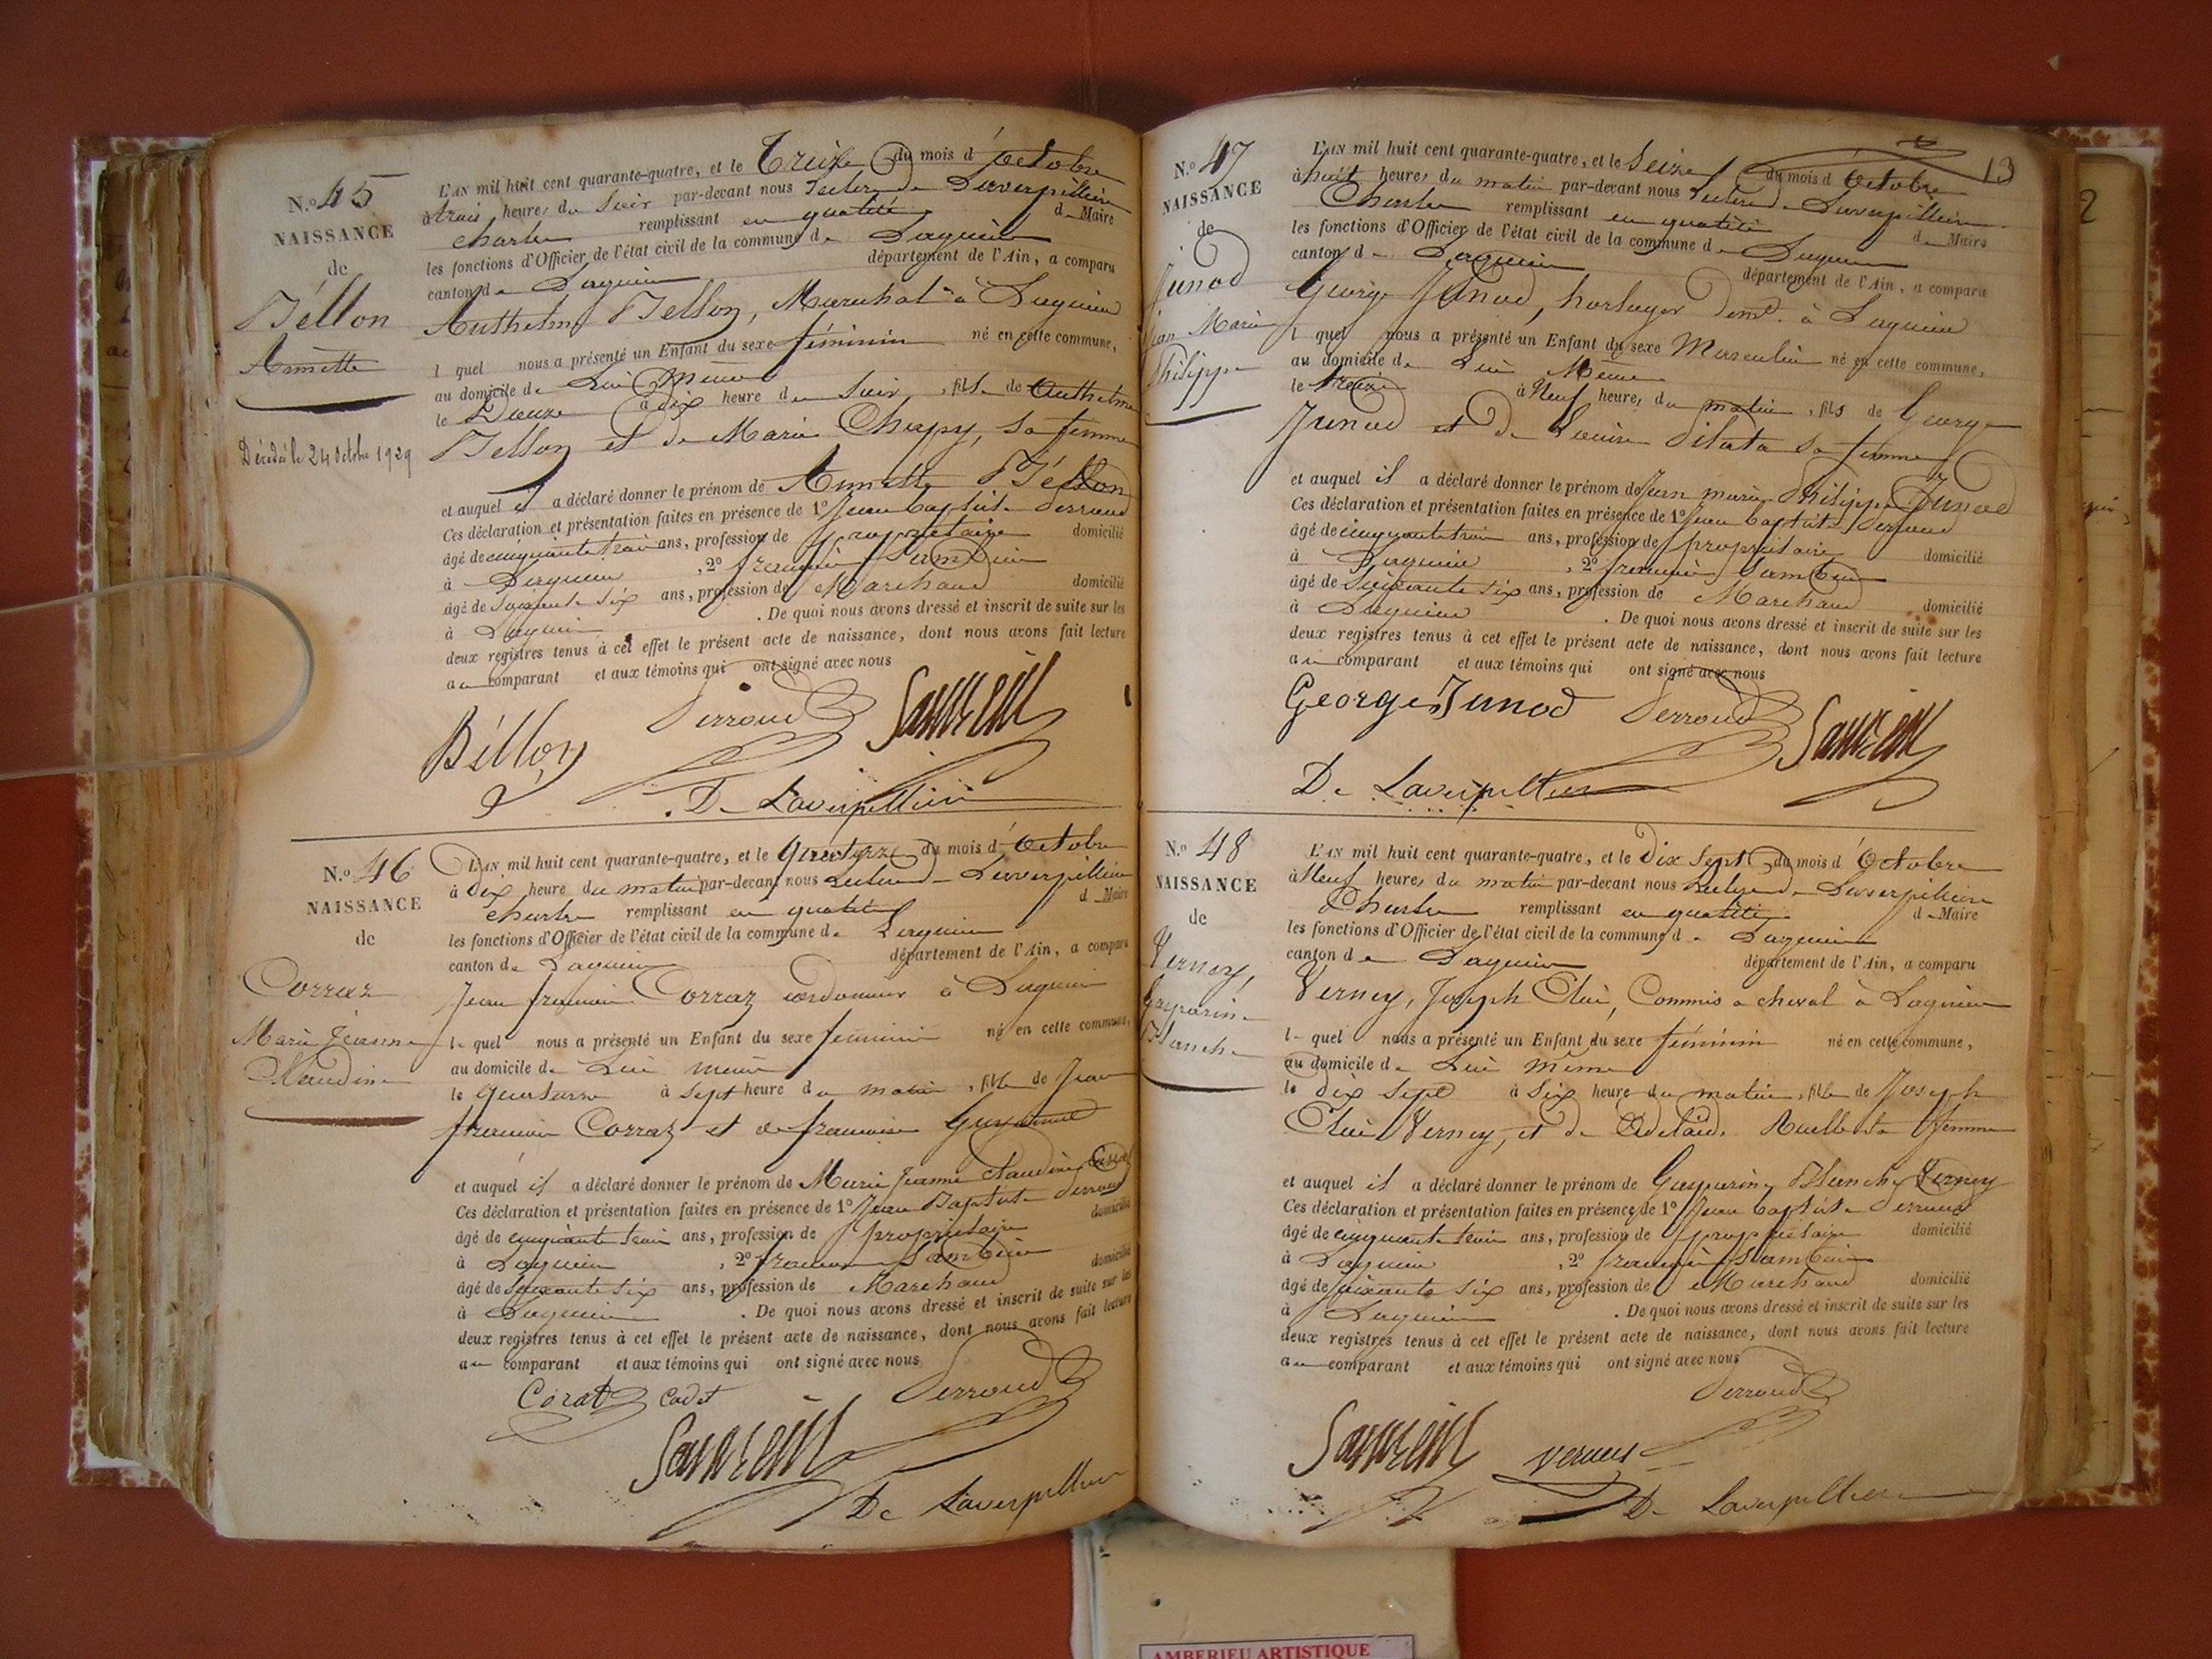 N.º 45
NAISSANCE
de
Béllon
Annette
Décédée le 24 Octobre 1929
L'AN mil huit cent quarante-quatre, et le Treize du mois d'octobre
à trois heures du Soir par-devant nous Leclerc de Laverpillière
Charles remplissant en qualité de Maire
les fonctions d'Officier de l'état civil de la commune de Lagnieu
canton de Lagnieu département de l'Ain, a comparu
Anthelme Bellon, Maréchal à Lagnieu
lequel nous a présenté un Enfant du sexe féminin né en cette commune,
au domicile de Lui Même
le Douze à dix heure du Soir, fille de Anthelme
Bellon et de Marie Chapy, Sa femme
et auquel il a déclaré donner le prénom de Annette Béllon
Ces déclaration et présentation faites en présence de 1º Jean Baptiste Derroud
âgé de cinquante trois ans, profession de propriétaire domicilié
à Lagnieu, 2º françois Sambin
âgé de Soixante Six ans, profession de Marchand domicilié
à Lagnieu. De quoi nous avons dressé et inscrit de suite sur les
deux registres tenus à cet effet le présent acte de naissance, dont nous avons fait lecture
au comparant et aux témoins qui ont signé avec nous
Béllon Derroud
De Laverpillière
N.º 46
NAISSANCE
de
Corraz
Marie Jeanne
Claudine
L'AN mil huit cent quarante-quatre, et le Quatorze du mois d'Octobre
à Dix heure du matin par-devant nous Leclerc de Laverpillière
Charles remplissant en qualité de Maire
les fonctions d'Officier de l'état civil de la commune de Lagnieu
canton de Lagnieu département de l'Ain, a comparu
Jean françois Corraz cordonnier à Lagnieu
lequel nous a présenté un Enfant du sexe féminin né en cette commune,
au domicile de Lui même
le Quatorze à Sept heure du matin, fille de Jean
françois Corraz et de françoise
et auquel il a déclaré donner le prénom de Marie Jeanne Claudine Corraz
Ces déclaration et présentation faites en présence de 1º Jean Baptiste Derroud
âgé de cinquante trois ans, profession de propriétaire domicilié
à Lagnieu, 2º françois Sambin
âgé de Soixante Six ans, profession de Marchand domicilié
à Lagnieu. De quoi nous avons dressé et inscrit de suite sur les
deux registres tenus à cet effet le présent acte de naissance, dont nous avons fait lecture
au comparant et aux témoins qui ont signé avec nous
Coratz cadet Derroud
De Laverpillière
13
N.º 47
NAISSANCE
de
Junod
Jean Marie
Philippe
L'AN mil huit cent quarante-quatre, et le Seize du mois d'Octobre
à huit heures du matin par-devant nous Leclerc de Laverpillière
Charles remplissant en qualité de Maire
les fonctions d'Officier de l'état civil de la commune de Lagnieu
canton de Lagnieu département de l'Ain, a comparu
George Junod, horloger demt. à Lagnieu
l quel nous a présenté un Enfant du sexe Masculin né en cette commune,
au domicile de Lui Même
le treize à Neuf heures du matin, fils de George
Junod et de Louise Sa femme
et auquel il a déclaré donner le prénom de Jean marie Philippe Junod
Ces déclaration et présentation faites en présence de 1º Jean baptiste Derroud
âgé de cinquante trois ans, profession de propriétaire domicilié
à Lagnieu, 2º françois Sambin
âgé de Soixante Six ans, profession de Marchand domicilié
à Lagnieu. De quoi nous avons dressé et inscrit de suite sur les
deux registres tenus à cet effet le présent acte de naissance, dont nous avons fait lecture
au comparant et aux témoins qui ont signé avec nous
George Junod Derroud
De Laverpillière
N.º 48
NAISSANCE
de
Verney,
Gasparine
Blanche
L'AN mil huit cent quarante-quatre, et le Dix Sept du mois d'Octobre
à Neuf heures du matin par-devant nous Leclerc de Laverpillière
Charles remplissant en qualité de Maire
les fonctions d'Officier de l'état civil de la commune de Lagnieu
canton de Lagnieu département de l'Ain, a comparu
Verney, Joseph, Commis à cheval à Lagnieu
lequel nous a présenté un Enfant du sexe féminin né en cette commune,
au domicile de Lui même
le dix Sept à Six heure du matin, fille de Joseph
Verney, et de Adelaïde Sa femme
et auquel il a déclaré donner le prénom de Gasparine Blanche Verney
Ces déclaration et présentation faites en présence de 1º Jean baptiste Derroud
âgé de cinquante trois ans, profession de propriétaire domicilié
à Lagnieu, 2º françois Sambin
âgé de soixante Six ans, profession de Marchand domicilié
à Lagnieu. De quoi nous avons dressé et inscrit de suite sur les
deux registres tenus à cet effet le présent acte de naissance, dont nous avons fait lecture
au comparant et aux témoins qui ont signé avec nous
Derroud
Verney
De Laverpillière
AMBERIEU ARTISTIQUE